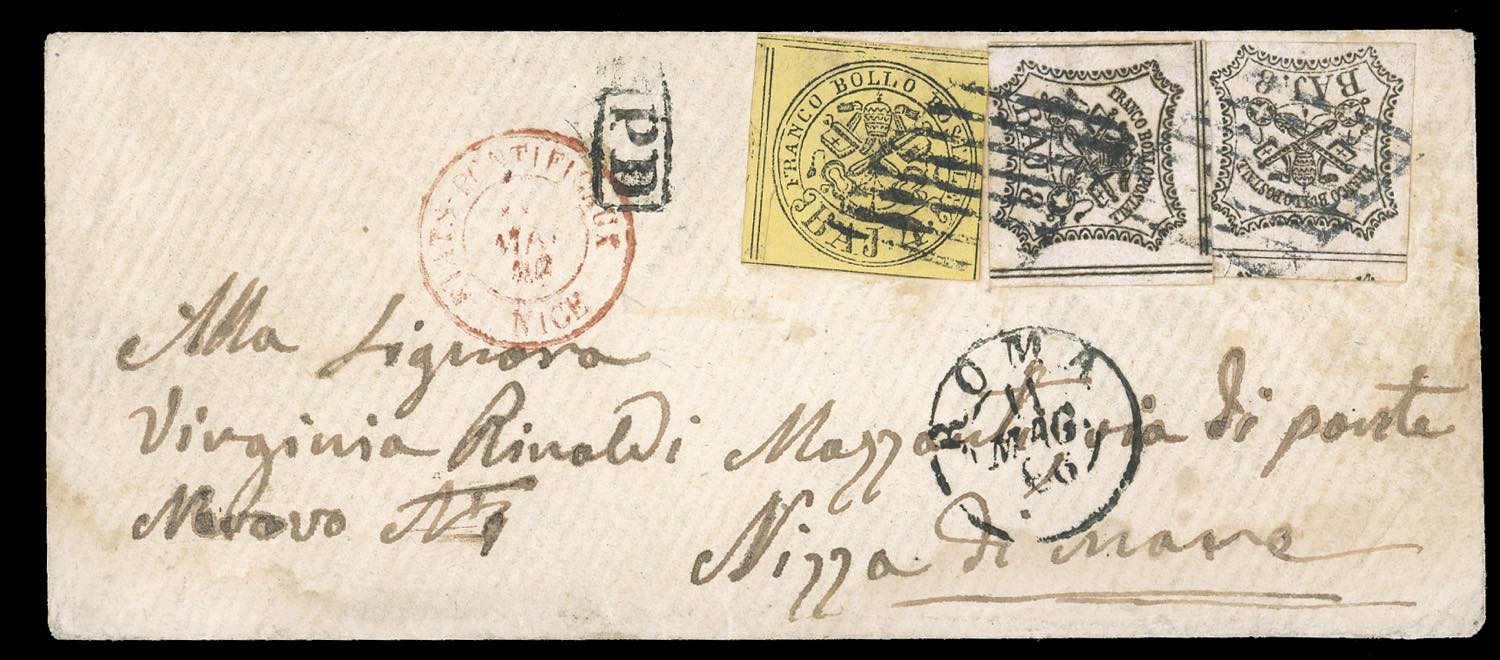 FRANCO BOLLO POSTALE
BAJ. 4
FRANCO BOLLO POSTALE
BAJ. 8
FRANCO BOLLO POSTALE
BAJ. 8
PD
NICE
ROMA
11
MAG.
66
Alla Signora
Virginia Rinaldi via di ponte
Nuovo
Nizza di mare